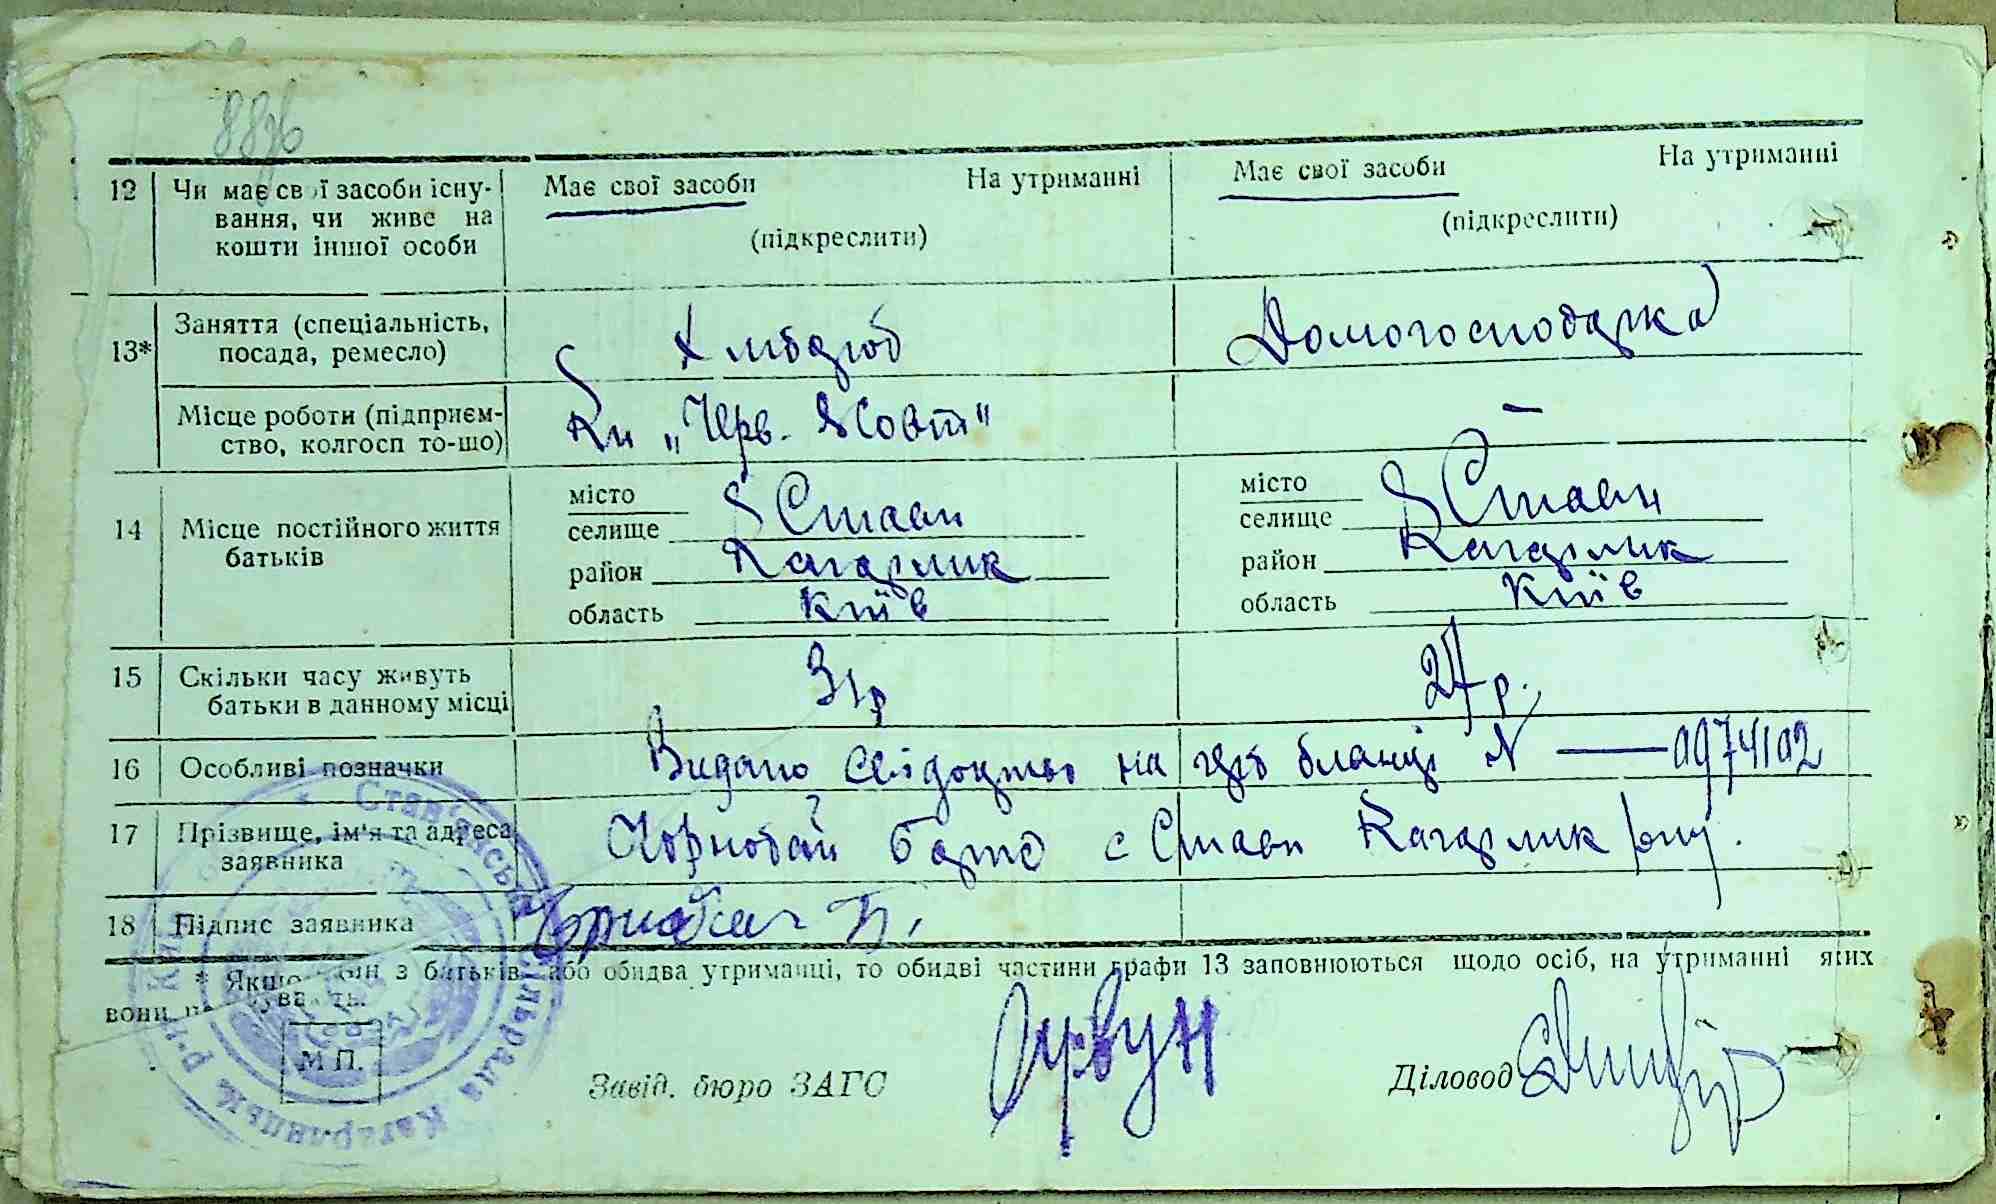 88зв
12 Чи має свої засоби існу-
вання, чи живе на
кошти іншої особи
Має свої засоби На утриманні
(підкреслити)
Має свої засоби На утриманні
(підкреслити)
13* Заняття (спеціальність,
посада, ремесло)
Хлібороб
Домогосподарка
Місце роботи (підприєм-
ство, колгосп то-що)
„Черв. Жовт"
—
14 Місце постійного життя
батьків
місто
селище с Стави
район Кагарлик
область Київ
місто
селище с Стави
район Кагарлик
область Київ
15 Скільки часу живуть
батьки в данному місці
31 р
27 р.
16 Особливі позначки
Видано свідоцтво на цій бланці N — 0974102
17 Прізвище, ім'я та адреса
заявника
Чорнобай с Стави Кагарлик
18 Підпис заявника
* Якщо з батьків або обидва утриманці, то обидві частини графи 13 заповнюються щодо осіб, на утриманні яких
вони
М П.
Завід. бюро ЗАГС
Діловод